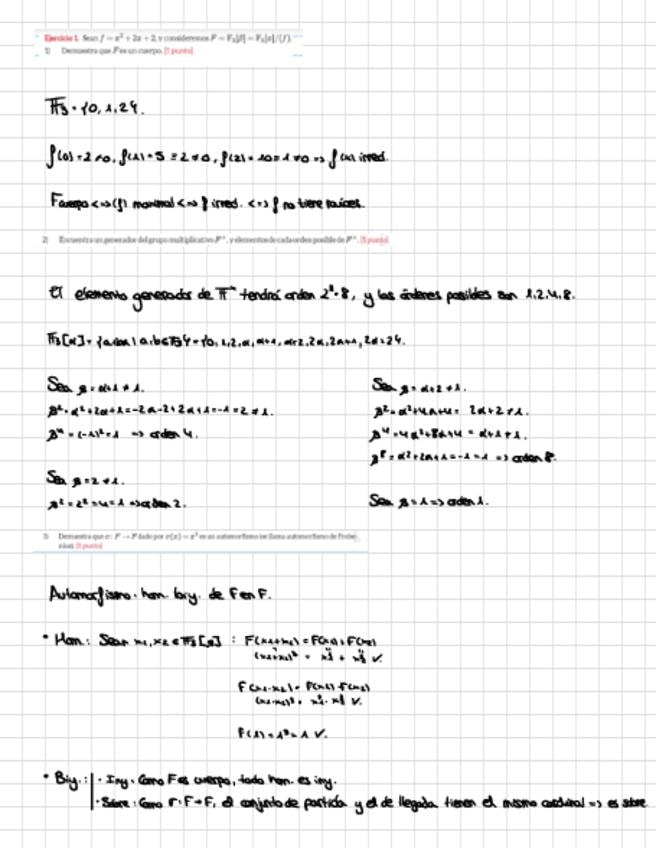 Ejercicio 1. Sean f = x² + 2x + 2, y consideremos F = F₃[β] = F₃[x]/(f).
1) Demuestra que F es un cuerpo. [1 punto]
𝔽₃ = {0, 1, 2}.
f(0) = 2 ≠ 0, f(1) = 5 ≡ 2 ≠ 0, f(2) = 10 = 1 ≠ 0 => f(x) irred.
F cuerpo <=> (f) maximal <=> f irred. <=> f no tiene raíces.
2) Encuentra un generador del grupo multiplicativo F*, y elementos de cada orden posible de F*. [1 punto]
El elemento generador de 𝔽* tendrá orden 8, y los órdenes posibles son 1, 2, 4, 8.
𝔽₃[α] = {a+bα | a, b ∈ 𝔽₃} = {0, 1, 2, α, α+1, α+2, 2α, 2α+1, 2α+2}.
Sea β = α+1 ≠ 1.
β² = α²+2α+1 = -2α-2+2α+1 = -1 = 2 ≠ 1.
β⁴ = (-1)² = 1 => orden 4.
Sea β = 2 ≠ 1.
β² = 2² = 4 = 1 => orden 2.
Sea β = α+2 ≠ 1.
β² = α²+4α+4 = 2α+2 ≠ 1.
β⁴ = 4α²+8α+4 = α+1 ≠ 1.
β⁸ = α²+2α+1 = -1 = 1 => orden 8.
Sea β = 1 => orden 1.
3) Demuestra que σ: F → F dado por σ(x) = x³ es un automorfismo (se llama automorfismo de Frobenius). [1 punto]
Automorfismo = hom. biy. de F en F.
• Hom.: Sean x₁, x₂ ∈ 𝔽₃[β] : F(x₁+x₂) = F(x₁)+F(x₂)
(x₁+x₂)³ = x₁³ + x₂³ ✓.
F(x₁·x₂) = F(x₁)·F(x₂)
(x₁·x₂)³ = x₁³·x₂³ ✓.
F(1) = 1³ = 1 ✓.
• Biy.: · Iny. Como F es cuerpo, todo hom. es iny.
· Sobre: Como σ: F→F, el conjunto de partida y el de llegada tienen el mismo cardinal => es sobre.